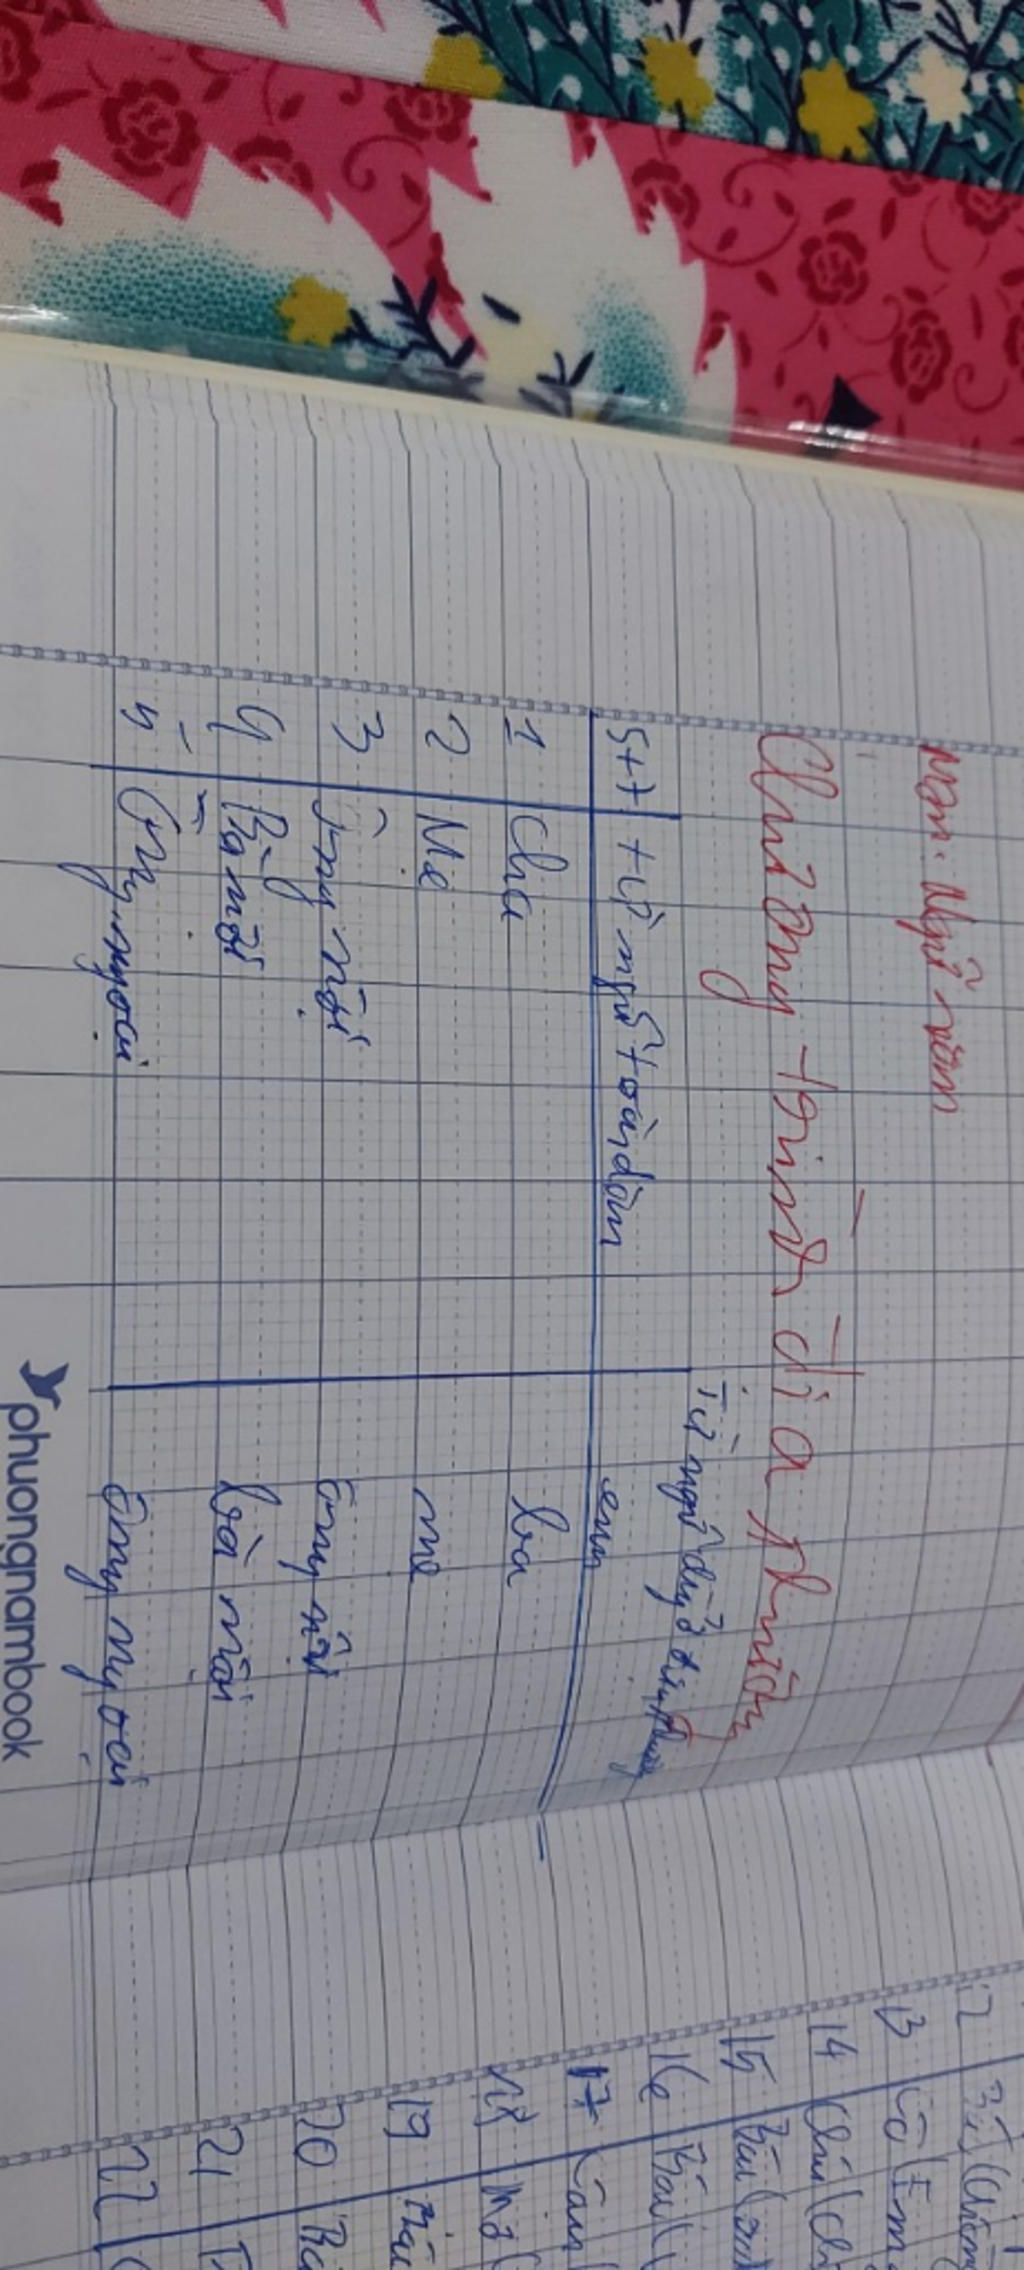 Môn: Ngữ văn
Chương trình địa phương
Stt từ ngữ toàn dân Từ ngữ được dùng ở địa phương em
1 Cha ba
2 Mẹ mẹ
3 Ông nội ông nội
4 Bà nội bà nội
5 Ông ngoại ông ngoại
phuongnambook
12
13
14 Chú
15
16 Bác
17
18 Mợ
19
20
21
22